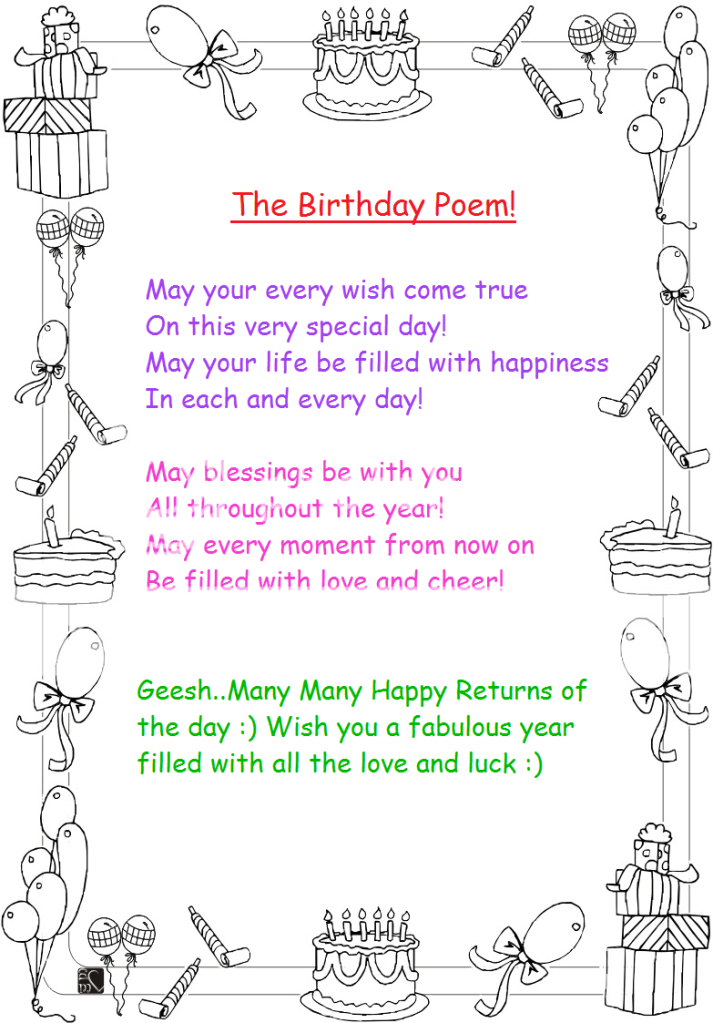 The Birthday Poem!
May your every wish come true
On this very special day!
May your life be filled with happiness
In each and every day!
May blessings be with you
All throughout the year!
May every moment from now on
Be filled with love and cheer!
Geesh..Many Many Happy Returns of
the day :) Wish you a fabulous year
filled with all the love and luck :)